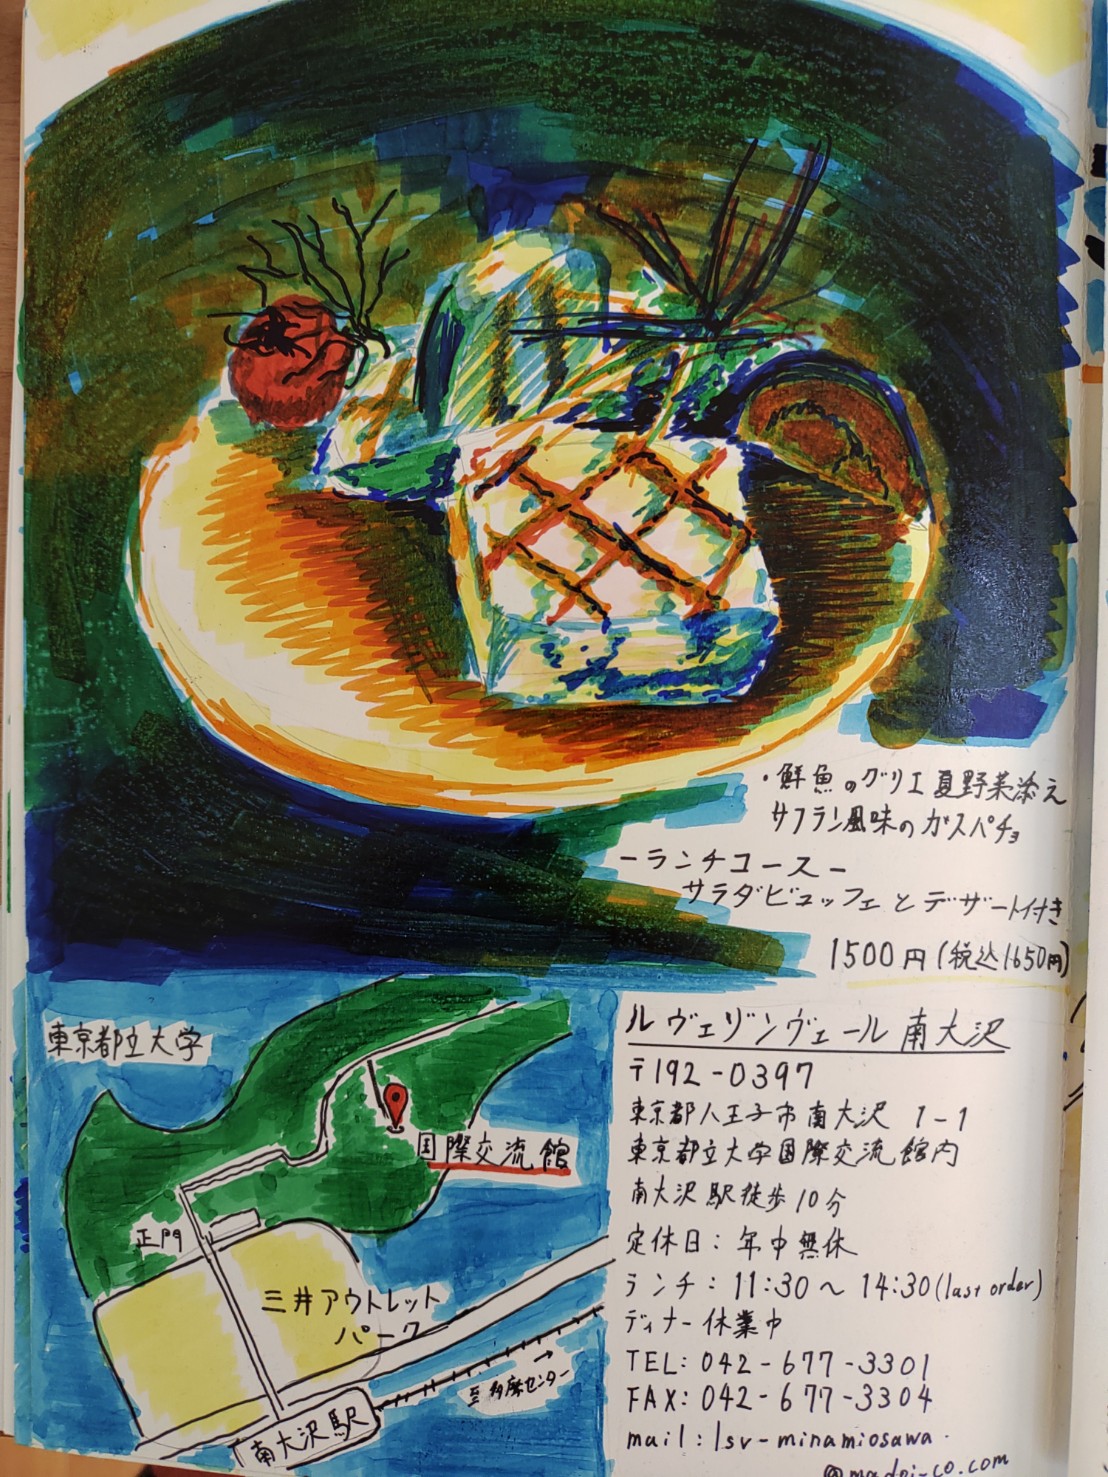 ・鮮魚のグリエ夏野菜添え
サフラン風味のガスパチョ
－ランチコース－
サラダビュッフェとデザート付き
1500円(税込1650円)
東京都立大学
国際交流館
正門
三井アウトレット
パーク
至多摩センター
南大沢駅
ルヴェソンヴェール南大沢
〒192-0397
東京都八王子市南大沢 1-1
東京都立大学国際交流館内
南大沢駅徒歩10分
定休日：年中無休
ランチ：11:30～14:30(last order)
ディナー休業中
TEL:042-677-3301
FAX:042-677-3304
mail:lsv-minamiosawa
@madoi-co.com